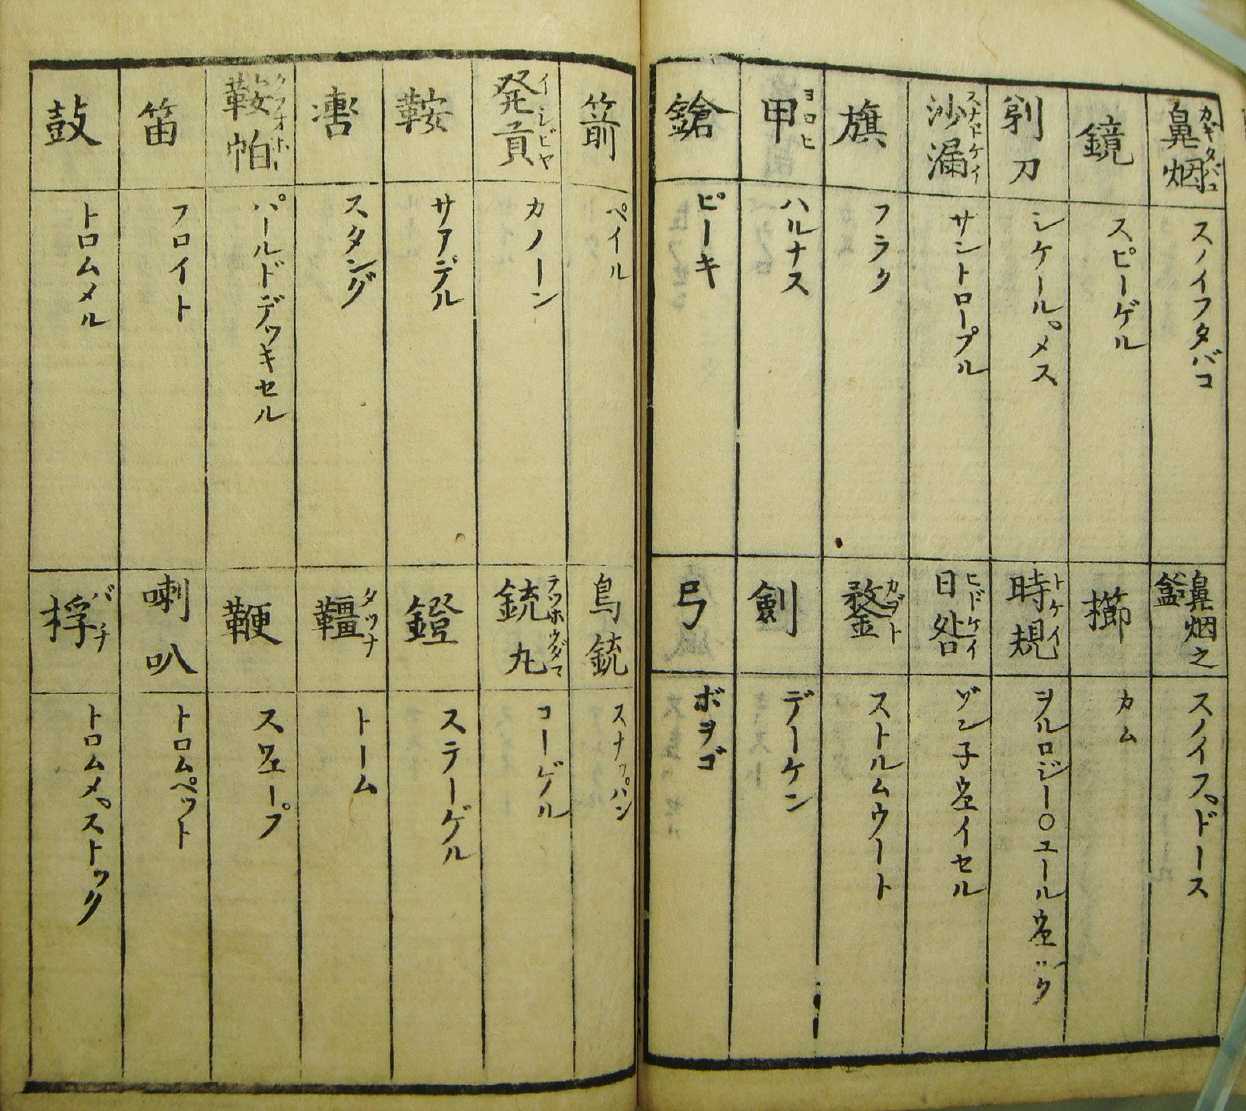 鼻烟 カギタバコ スノイフタバコ
鏡 スピーゲル
剃刀 シケールメス
沙漏 スナドケイ サントロープル
旗 フラク
甲 ヨロヒ ハルナス
鎗 ピーキ
鼻烟之盒 スノイフドース
櫛 カム
時規 トケイ ヲルロジー〇ユールウェルク
日晷 ヒドケイ ゾン子ウェイセル
鍪 カブト ストルムウート
劍 デーケン
弓 ボヲゴ
箭 ペイル
発貢 イシビヤ カノーン
鞍 サアデル
轡 スタング
鞍帕 パールドデッキセル
笛 フロイト
鼓 トロムメル
鳥銃 スナップハン
銃丸 テツホウダマ コーゲル
鐙 ステーゲル
韁 タヅナ トーム
鞭 スウェープ
喇叭 トロムペット
桴 バチ トロムメストック